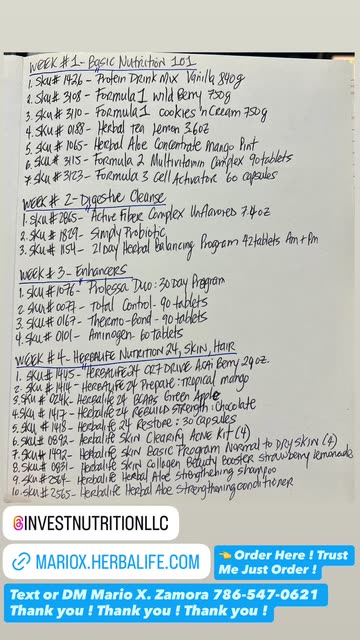 WEEK #1 - Basic Nutrition 101
1. SKU# 1426 - Protein Drink Mix Vanilla 840g
2. SKU# 3108 - Formula 1 Wild Berry 750g
3. SKU# 3110 - Formula 1 cookies 'n Cream 750g
4. SKU# 0188 - Herbal Tea Lemon 3.6oz
5. SKU# 1065 - Herbal Aloe Concentrate Mango Pint
6. SKU# 3115 - Formula 2 Multivitamin Complex 90tablets
7. SKU# 3123 - Formula 3 Cell Activator 60 capsules
WEEK #2 - Digestive Cleanse
1. SKU# 2865 - Active Fiber Complex Unflavored 7.4oz
2. SKU# 1829 - Simply Probiotic
3. SKU# 1154 - 21 Day Herbal Balancing Program 42tablets Am + Pm
WEEK #3 - Enhancers
1. SKU# 1076 - Prolessa Duo: 30 Day Program
2. SKU# 0077 - Total Control - 90 tablets
3. SKU# 0167 - Thermo-Bond - 90 tablets
4. SKU# 0101 - Aminogen - 60 tablets
WEEK #4 - HERBALIFE NUTRITION 24, SKIN, HAIR
1. SKU# 1445 - HERBALIFE24 CR7 DRIVE Acai Berry 24oz.
2. SKU# 1414 - HERBALIFE24 Prepare: Tropical mango
3. SKU# 024K - Herbalife 24 BCAAs Green Apple
4. SKU# 1417 - Herbalife 24 REBUILD STRENGTH: Chocolate
5. SKU# 1418 - Herbalife 24 Restore: 30 Capsules
6. SKU# 0892 - Herbalife SKIN Clearify Acne Kit (4)
7. SKU# 1492 - Herbalife skin Basic Program Normal to Dry skin (4)
8. SKU# 0831 - Herbalife SKIN Collagen Beauty Booster Strawberry lemonade
9. SKU# 2564 - Herbalife Herbal Aloe Strengthening shampoo
10. SKU# 2565 - Herbalife Herbal Aloe Strengthening conditioner
@INVESTNUTRITIONLLC
MARIOX.HERBALIFE.COM
👈 Order Here ! Trust
Me Just Order !
Text or DM Mario X. Zamora 786-547-0621
Thank you ! Thank you ! Thank you !